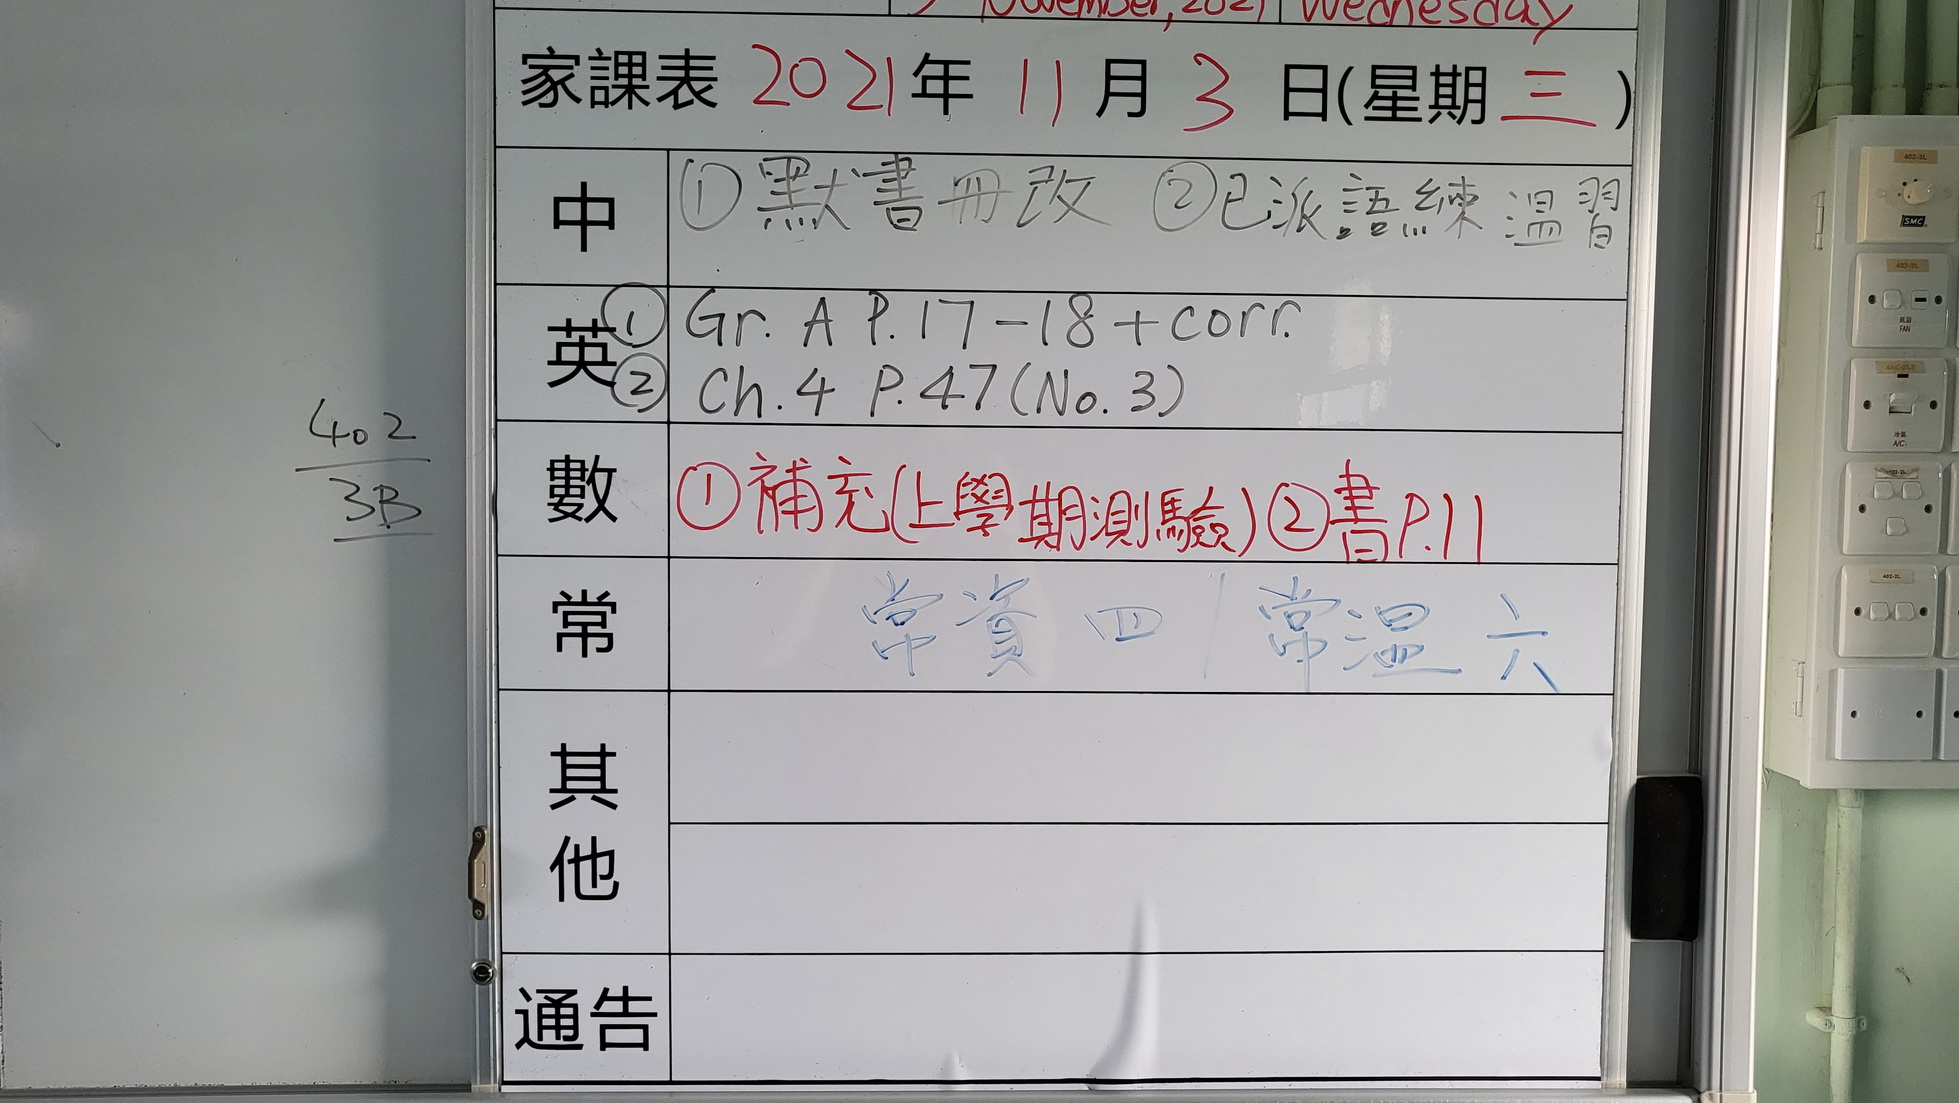 3 November, 2021 Wednesday
家課表 2021年 11月 3日(星期三)
中 ①默書冊改 ②已派語練溫習
英 ① Gr. A P.17-18+corr.
② Ch.4 P.47(No.3)
402
3B
數 ①補充(上學期測驗)②書P.11
常 常資四/常溫六
其他
通告
402-3L
SMC
402-3L
風扇
FAN
冷氣
A/C
402-2L
402-2L